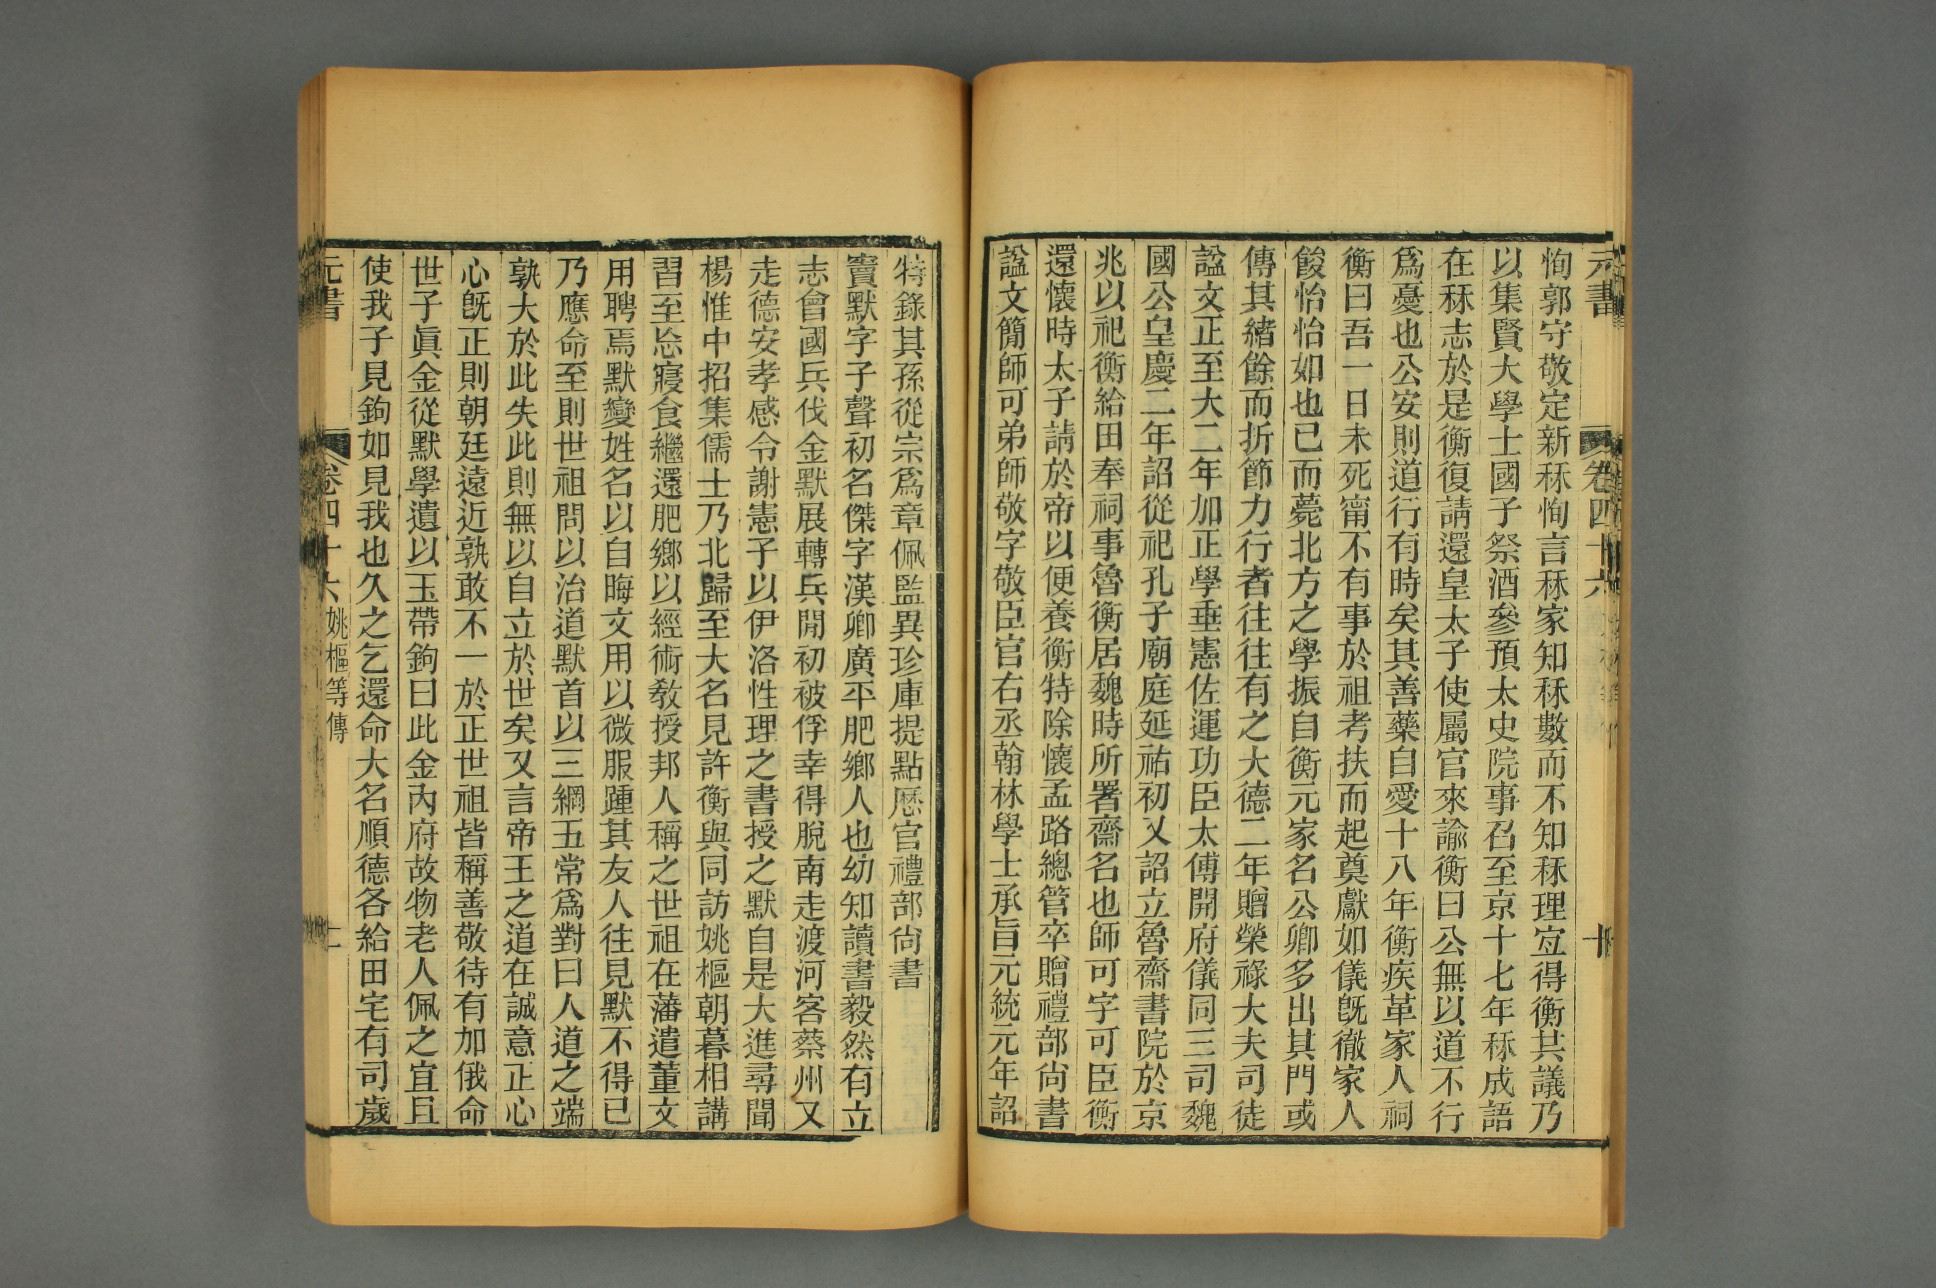 元書 卷四十六 十
恂郭守敬定新秝恂言秝家知秝數而不知秝理宐得衡其議乃
以集賢大學士國子祭酒參預太史院事召至京十七年秝成語
在秝志於是衡復請還皇太子使屬官來諭衡曰公無以道不行
爲憂也公安則道行有時矣其善藥自愛十八年衡疾革家人祠
衡曰吾一日未死甯不有事於祖考扶而起奠獻如儀旣徹家人
餕怡怡如也已而薨北方之學振自衡元家名公卿多出其門或
傳其緒餘而折節力行者往往有之大德二年贈榮祿大夫司徒
諡文正至大二年加正學垂憲佐運功臣太傅開府儀同三司魏
國公皇慶二年詔從祀孔子廟庭延祐初又詔立魯齋書院於京
兆以祀衡給田奉祠事魯衡居魏時所署齋名也師可字可臣衡
還懷時太子請於帝以便養衡特除懷孟路總管卒贈禮部尙書
諡文簡師可弟師敬字敬臣官右丞翰林學士承旨元統元年詔
特錄其孫從宗爲章佩監異珍庫提點厯官禮部尙書
竇默字子聲初名傑字漢卿廣平肥鄉人也幼知讀書毅然有立
志會國兵伐金默展轉兵閒初被俘幸得脫南走渡河客蔡州又
走德安孝感令謝憲子以伊洛性理之書授之默自是大進尋聞
楊惟中招集儒士乃北歸至大名見許衡與同訪姚樞朝暮相講
習至忘寢食繼還肥鄉以經術敎授邦人稱之世祖在藩遣董文
用聘焉默變姓名以自晦文用以微服踵其友人往見默不得已
乃應命至則世祖問以治道默首以三綱五常爲對曰人道之端
孰大於此失此則無以自立於世矣又言帝王之道在誠意正心
心旣正則朝廷遠近孰敢不一於正世祖皆稱善敬待有加俄命
世子眞金從默學遺以玉帶鉤曰此金內府故物老人佩之宜且
使我子見鉤如見我也久之乞還命大名順德各給田宅有司歲
元書 卷四十六 姚樞等傳